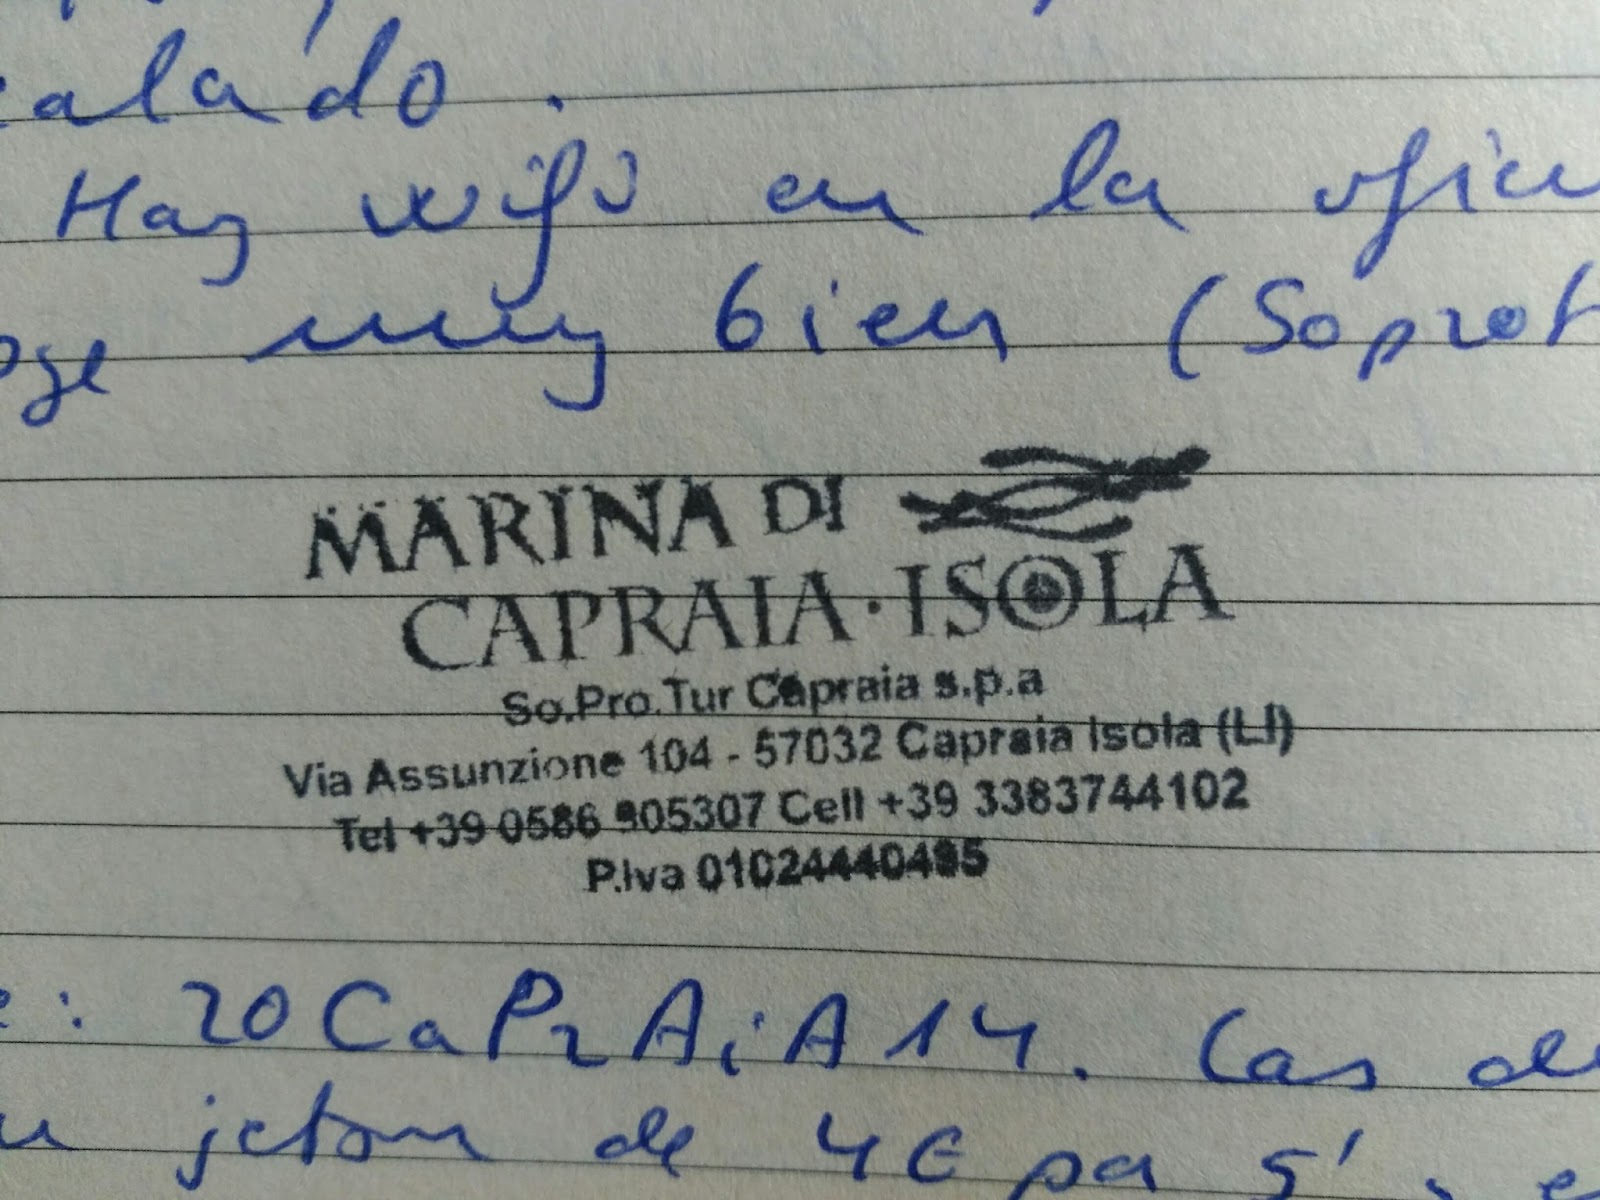 calado.
Hay wifi en la ofici
oge muy bien (Soprot
MARINA DI
CAPRAIA·ISOLA
So.Pro.Tur Capraia s.p.a
Via Assunzione 104 - 57032 Capraia Isola (LI)
Tel +39 0586 905307 Cell +39 3383744102
P.Iva 01024440495
e: 20CaPrAiA14. Las de
u jeton de 4€ pa 5', e